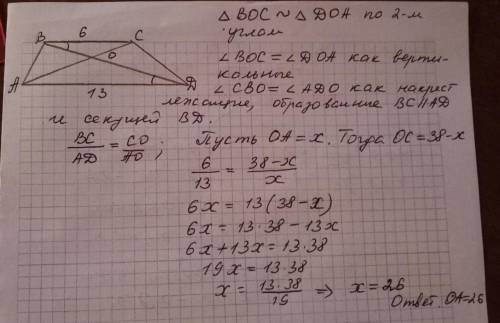 △BOC ~ △DOA по 2-м
углам
∠BOC = ∠DOA как верти-
кольные
∠CBO = ∠ADO как накрест
лежащие, образованные BC∥AD
и секущей BD.
B 6 C
O
A 13 D
BC/AD = CO/AO ; Пусть OA = x. Тогда OC = 38-x
6/13 = 38-x/x
6x = 13(38-x)
6x = 13·38 - 13x
6x + 13x = 13·38
19x = 13·38
x = 13·38/19 ⇒ x = 26
Ответ. OA=26